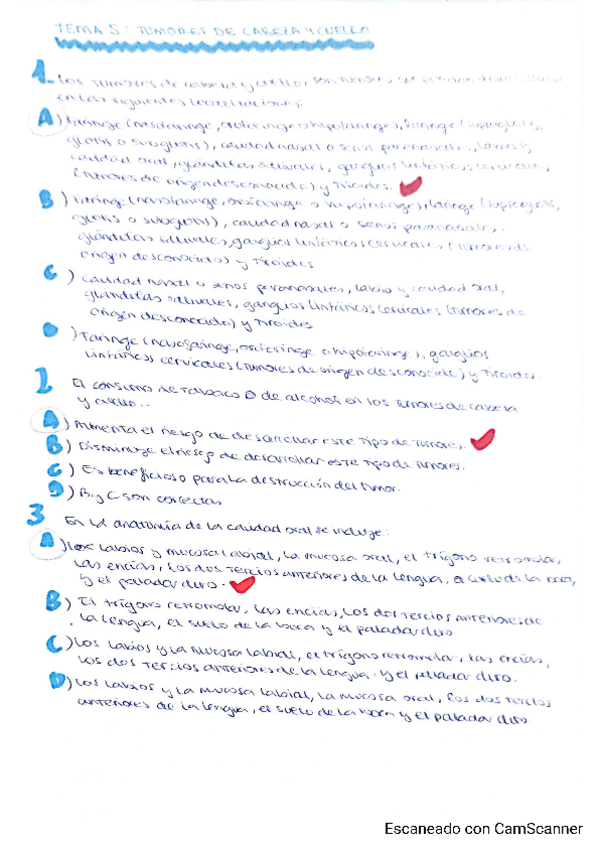 TEMA 5: TUMORES DE CABEZA Y CUELLO
1. Los tumores de cabeza y cuello, son tumores, que pueden desarrollarse
en las siguientes localizaciones:
A) Faringe (nasofaringe, orofaringe o hipofaringe), laringe (supraglotis,
glotis o subglotis), caudad nasal o senos paranasales, labios y
caudad oral, glándulas salivales, ganglios linfáticos cervicales
(tumores de origen desconocido) y Tiroides.
B) Faringe (nasofaringe, orofaringe o hipofaringe), laringe (supraglotis,
glotis o subglotis), caudad nasal o senos paranasales.
glándulas salivales, ganglios linfáticos cervicales (tumores de
origen desconocido) y Tiroides
C) Caudad nasal o senos paranasales, labio y caudad oral,
glándulas salivales, ganglios linfáticos cervicales (tumores de
origen desconocido) y Tiroides
D) Faringe (nasofaringe, orofaringe o hipofaringe), ganglios
linfáticos cervicales (tumores de origen desconocido) y Tiroides
2 El consumo de tabaco o de alcohol en los tumores de cabeza
y cuello..
A) Aumenta el riesgo de desarrollar este tipo de tumores.
B) Disminuye el riesgo de desarrollar este tipo de tumores.
C) Es beneficioso para la destrucción del tumor.
D) B y C son correctas
3 En la anatomía de la caudad oral se incluye:
A) Los labios y mucosa labial, la mucosa oral, el trígono retromolar,
las encías, los dos tercios anteriores de la lengua, el suelo de la boca,
y el paladar duro.
B) El trígono retromolar, las encías, los dos tercios anteriores de
la lengua, el suelo de la boca y el paladar duro
C) Los labios y la mucosa labial, el trígono retromolar, las encías,
los dos tercios anteriores de la lengua y el paladar duro.
D) Los labios y la mucosa labial, la mucosa oral, los dos tercios
anteriores de la lengua, el suelo de la boca y el paladar duro
Escaneado con CamScanner